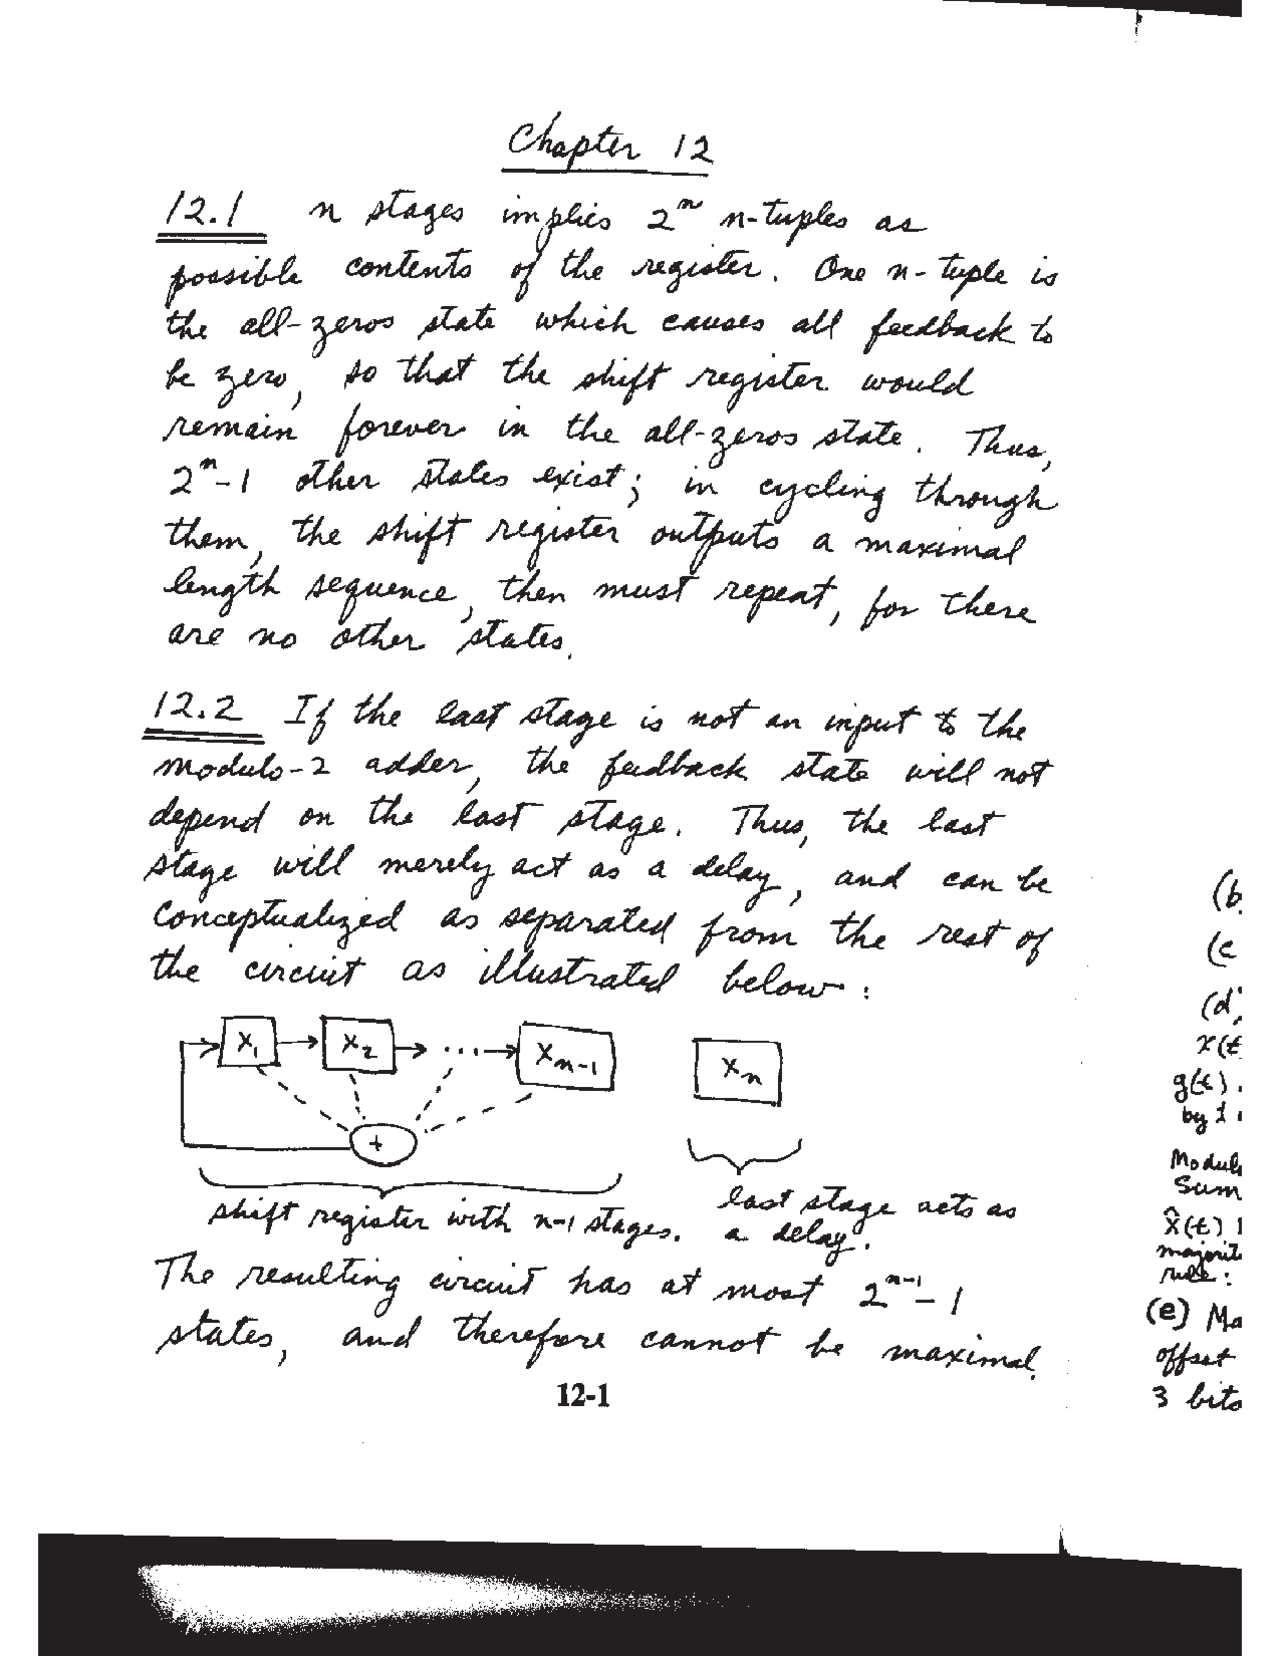 Chapter 12
12.1 n stages implies 2^n n-tuples as
possible contents of the register. One n-tuple is
the all-zeros state which causes all feedback to
be zero, so that the shift register would
remain forever in the all-zeros state. Thus,
2^n-1 other states exist; in cycling through
them, the shift register outputs a maximal
length sequence, then must repeat, for there
are no other states.
12.2 If the last stage is not an input to the
modulo-2 adder, the feedback state will not
depend on the last stage. Thus, the last
stage will merely act as a delay, and can be
conceptualized as separated from the rest of
the circuit as illustrated below:
X1 X2 ... Xn-1 Xn
+
shift register with n-1 stages. last stage acts as
a delay.
The resulting circuit has at most 2^n-1 - 1
states, and therefore cannot be maximal.
12-1
(b
(c
(d)
x(t
g(t)
by 1
Modul
Sum
x̂(t)
majorit
rule:
(e) Ma
offset
3 bits